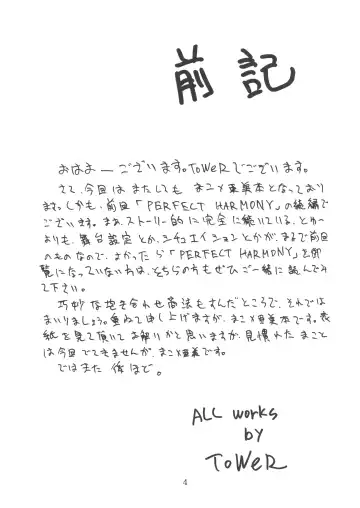 前記
おはよーございます。ToWeRでございます。
さて、今回はまたしても まこ×亜美本となっており
ます。しかも、前回「PERFECT HARMONY」の続編で
ございます。まあ、ストーリー的に完全に続いている、とゆー
よりも、舞台設定とか、シチュエイションとかが、まるで前回
のものなので、よかったら「PERFECT HARMONY」を御
覧になっていない方は、そちらの方もぜひご一緒に読んでみ
て下さい。
巧妙な抱き合わせ商法もすんだところで、それでは
まいりましょう。重ねて申し上げますが、まこ×亜美本です。表
紙を見て頂いてお解りかと思いますが、見慣れた まこと
は今回でてきませんが、まこ×亜美です。
ではまた 後ほど。
ALL works
by
ToWeR
4